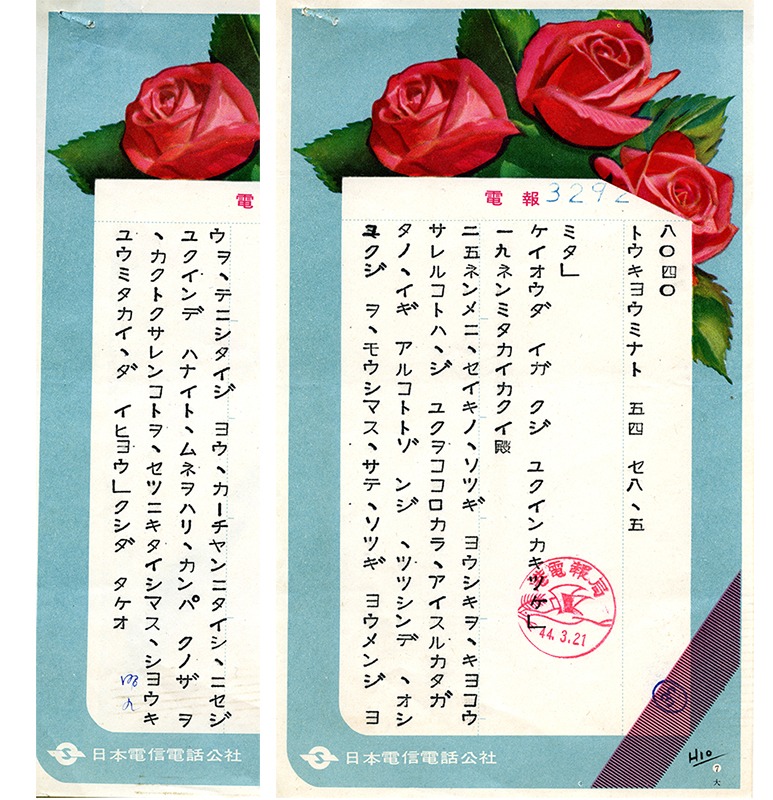 電報 3292
八〇四〇
トウキヨウミナト 五四 セ八、五
ミタ」
ケイオウダ イガ クジ ユクインカキツケ」
一九ネンミタカイカクイ殿
二五ネンメニ、セイキノ、ソツギ ヨウシキヲ、キヨコウ
サレルコトハ、ジ ユクヲココロカラ、アイスルカタガ
タノ、イギ アルコトトゾ ンジ 、ツツシンデ 、オシ
ユクジ ヲ、モウシマス、サテ、ソツギ ヨウメンジ ヨ
電報局
44.3.21
H10
⑦
大
日本電信電話公社
電
ウヲ、テニシタイジ ヨウ、カーチヤンニタイシ、ニセジ
ユクインデ ハナイト、ムネヲハリ、カンパ クノザ ヲ
、カクトクサレンコトヲ、セツニキタイシマス、シヨウキ
ユウミタカイ、ダ イヒヨウ」クシダ タケオ
日本電信電話公社